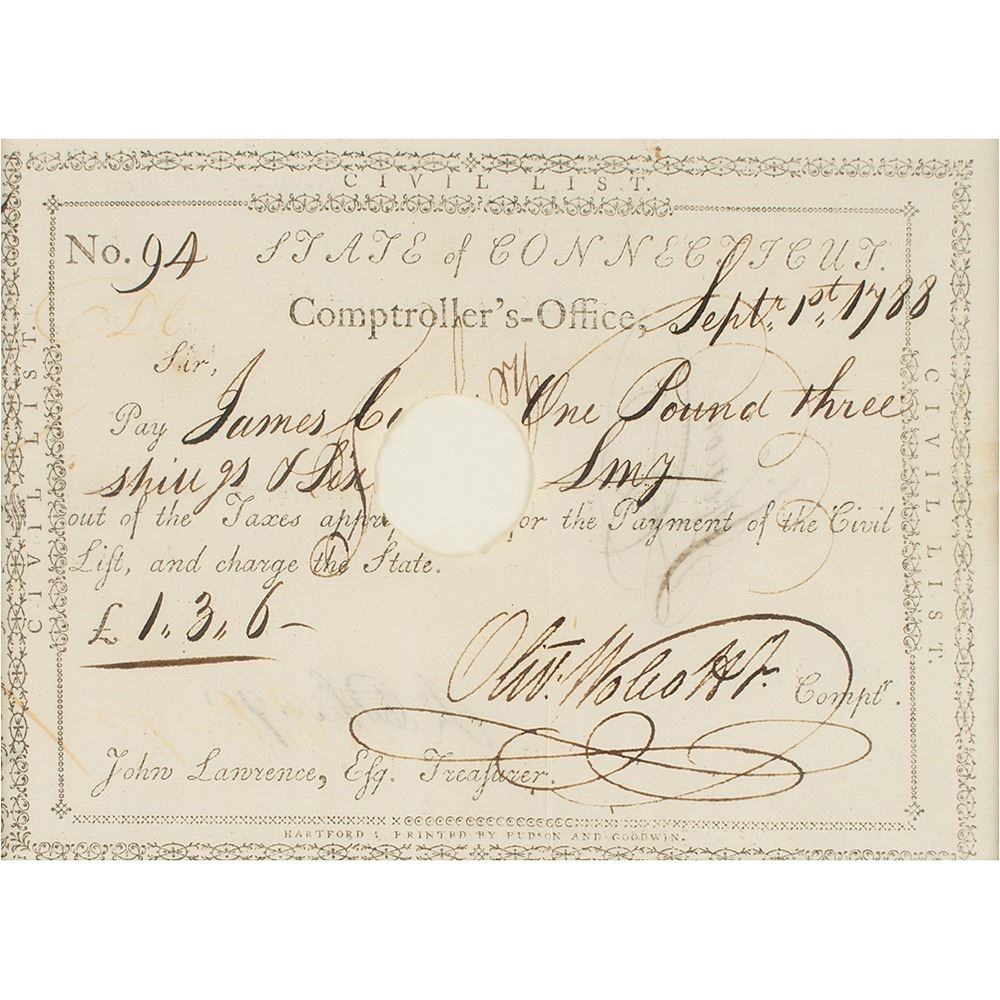 CIVIL LIST.
No. 94 STATE of CONNECTICUT.
Comptroller's-Office, Septr. 1st, 1788
Sir,
Pay James One Pound three
shings & Six Lmy
out of the Taxes appr or the Payment of the Civil
Liſt, and charge the State.
£ 1,, 3,, 6 –
Olivr. Wolcott Jr. Comptr.
John Lawrence, Eſq. Treaſurer.
HARTFORD: PRINTED BY HUDSON AND GOODWIN.
CIVIL LIST.
CIVIL LIST.